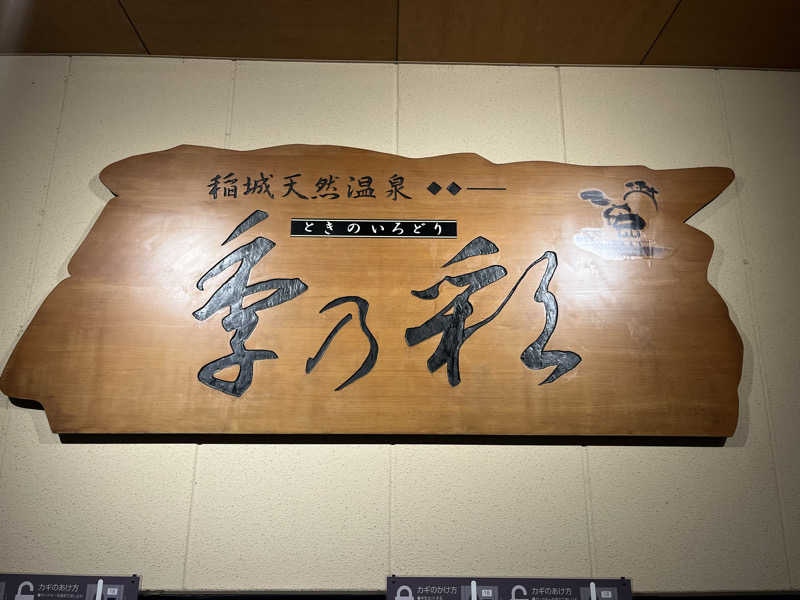 稲城天然温泉
ときのいろどり
季乃彩
カギのあけ方
カギのかけ方
カギのあけ方